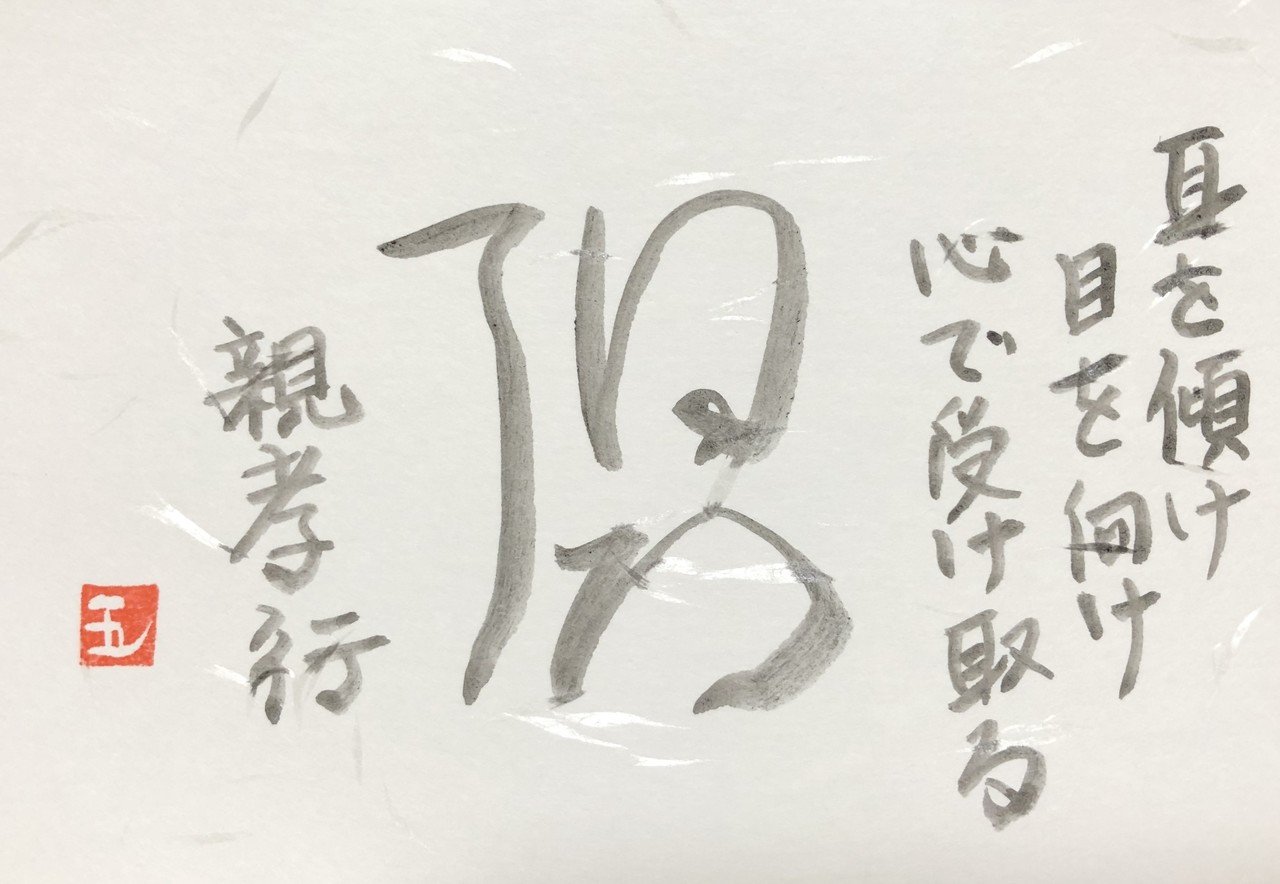 耳を傾け
目を向け
心で受け取る
親孝行
五